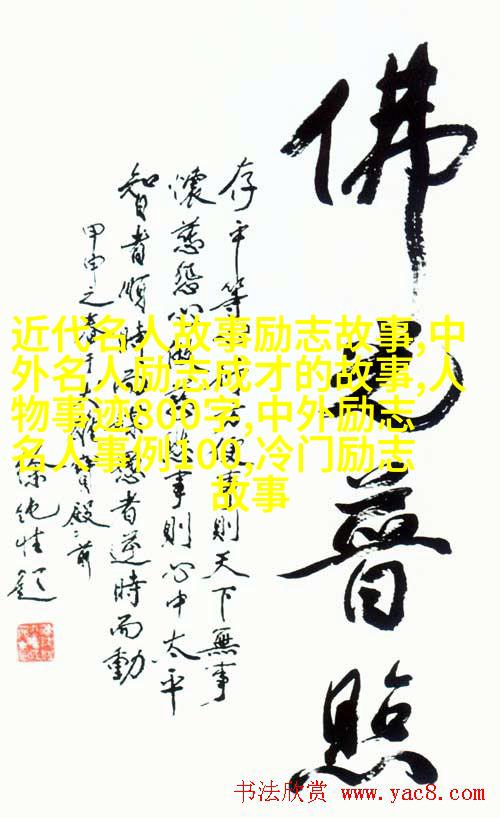 佛光普照
存平等心行方便事則天下無事
懷慈悲心做慈悲事則心中太平
智者順時而謀愚者逆時而動
甲申之春于大雄寶殿之前
徐
題
近代名人故事励志故事,中
外名人励志成才的故事,人
物事迹800字,中外励志
名人事例100,冷门励志
故事
书法欣赏 www.yac8.com